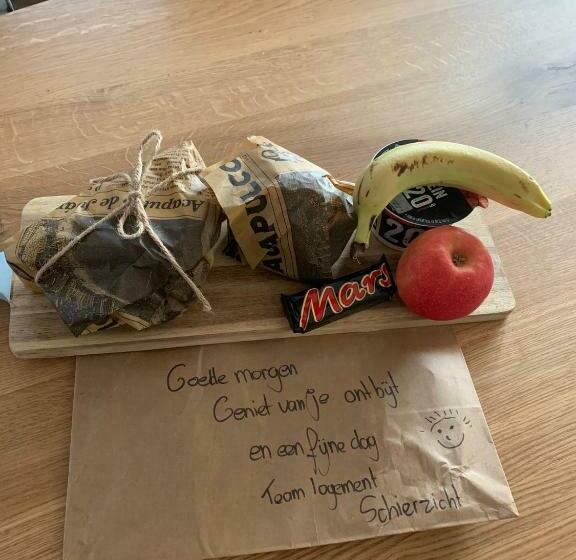 Acapulco de Juár
ACAPULCO
20
20
Mars
Goede morgen
Geniet van je ontbijt
en een fijne dag
Team logement
Schierzicht